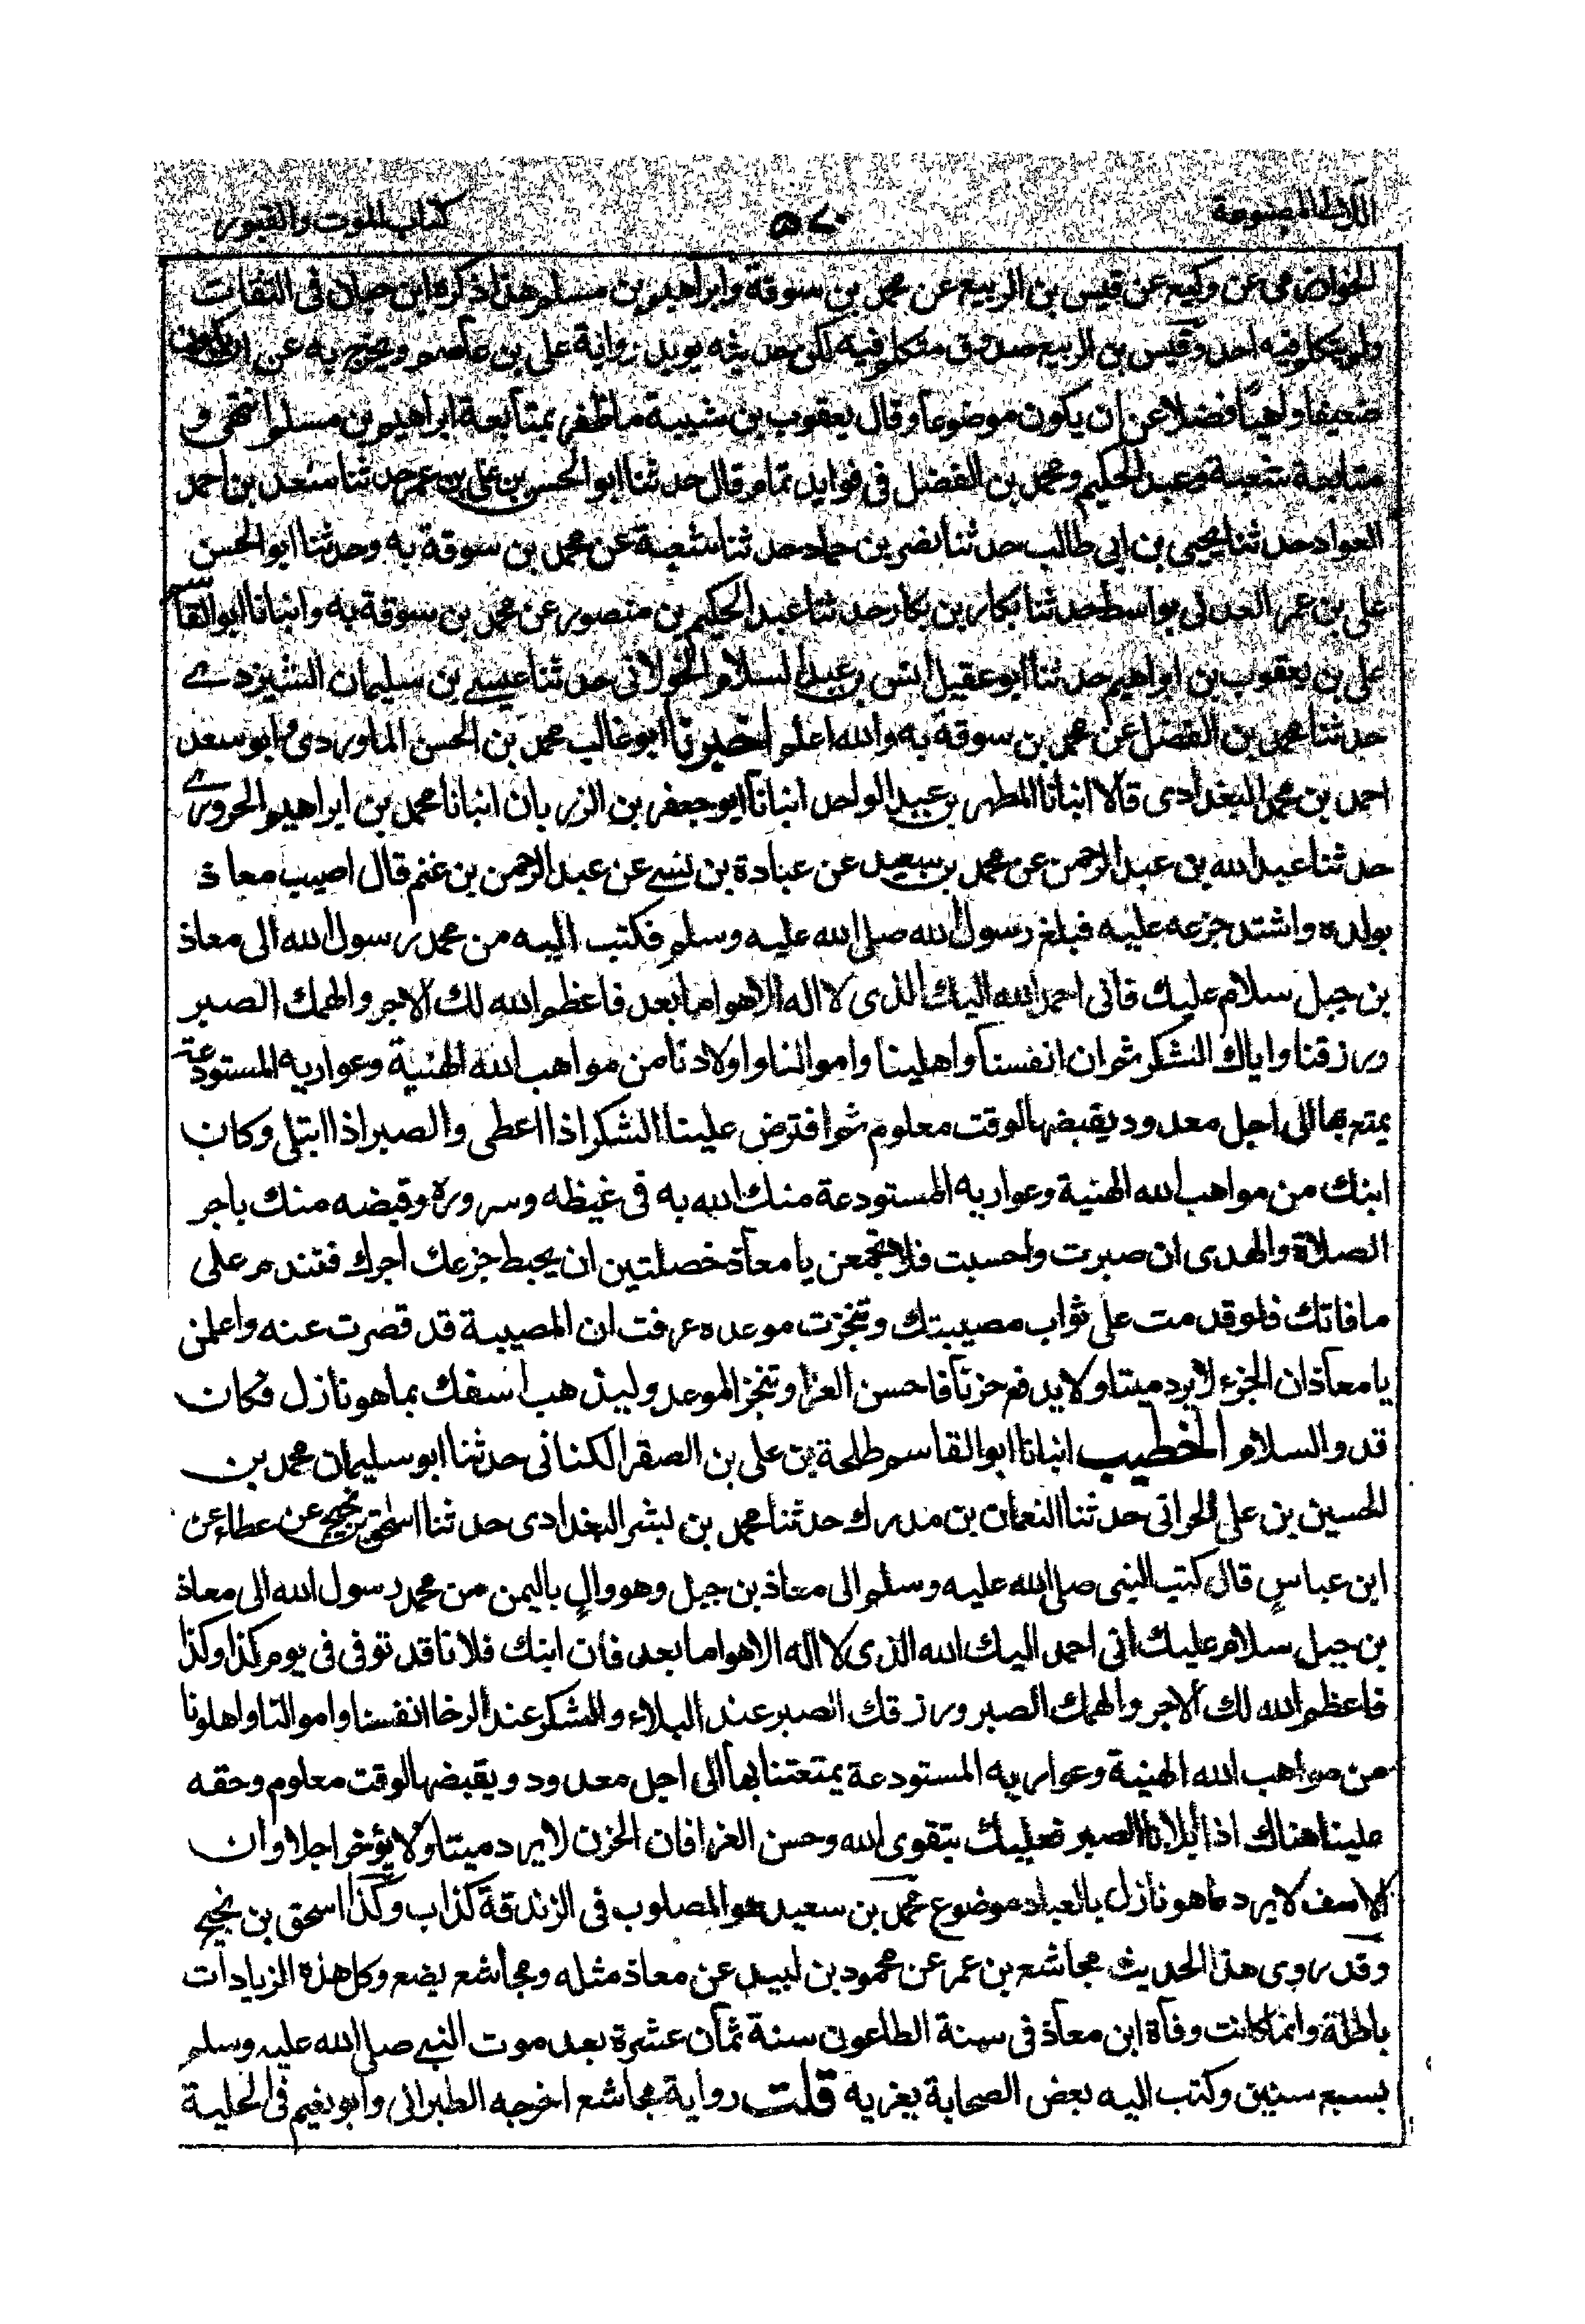 اللآلى المصنوعة ٥٢٠ كتاب الموت والقبور
الخوارزمى عن وكيع عن قيس بن الربيع عن محمد بن سوقة وابراهيم بن مسلم هذا ذكره ابن حبان فى الثقات
ولم يتكلم فيه احد وقيس بن الربيع صدوق متكلم فيه لكن حديثه يويد رواية على بن عاصم ويخرج به عن ان يكون
ضعيفا واهيا فضلا عن ان يكون موضوعا وقال يعقوب بن شيبة ما ظفر بمتابعة ابراهيم بن مسلم انتهى و
متابعة شعبة وعبد الحكيم ومحمد بن الفضل فى فوايد تمام قال حدثنا ابو الحسن بن على بن عمر حدثنا سعد بن احمد
العواد حدثنا يحيى بن ابى طالب حدثنا نصر بن حماد حدثنا شعبة عن محمد بن سوقة به وحدثنا ابو الحسن
على بن عمر العدلى بواسط حدثنا بكار بن بكار حدثنا عبد الحكيم بن منصور عن محمد بن سوقة به وانبانا ابو القاسم
على بن يعقوب بن ابراهيم حدثنا ابو عقيل انس بن عبد السلام الخولانى حدثنا عيسے بن سليمان الشيزدے
حدثنا محمد بن الفضل عن محمد بن سوقة به والله اعلم اخبرنا ابو غالب محمد بن الحسن الماوردى وابو سعد
احمد بن محمد البغدادى قالا انبانا المطهر بن عبد الواحد انبانا ابو جعفر بن المرزبان انبانا محمد بن ابراهيم الحرورے
حدثنا عبد الله بن عبد الرحمن عن محمد بن سعيد عن عبادة بن نسے عن عبد الرحمن بن غنم قال اصيب معاذ
بولده واشتد جزعه عليه فبلغ رسول الله صلى الله عليه وسلم فكتب اليه من محمد رسول الله الى معاذ
بن جبل سلام عليك فانى احمد الله اليك الذى لا اله الا هو اما بعد فاعظم الله لك الاجر والهمك الصبر
ورزقنا واياك الشكر ثم ان انفسنا واهلينا واموالنا واولادنا من مواهب الله الهنية وعواريه المستودعة
يمتع بها الى اجل معدود يقبضها لوقت معلوم ثم افترض علينا الشكر اذا اعطى والصبر اذا ابتلى وكان
ابنك من مواهب الله الهنية وعواريه المستودعة منك الله به فى غيظه وسروره وقبضه منك باجر
الصلاة والهدى ان صبرت واحسبت فلا تجمعن يا معاذ خصلتين ان يحبط جزعك اجرك فتندم على
ما فاتك فلو قدمت على ثواب مصيبتك وتنجزت موعده عرفت ان المصيبة قد قصرت عنه واعلمن
يا معاذ ان الجزع لا يرد ميتا ولا يدفع حزنا فاحسن العزا وتنجز الموعد وليذهب اسفك بما هو نازل فكان
قد والسلام الخطيب انبانا ابو القاسم طلحة بن على بن الصقر الكنانى حدثنا ابو سليمان محمد بن
الحسين بن على الحرانى حدثنا النعمان بن مدرك حدثنا محمد بن بشر البغدادى حدثنا اسحق بن نجيح عن عطاء عن
ابن عباس قال كتب النبى صلى الله عليه وسلم الى معاذ بن جبل وهو وال باليمن من محمد رسول الله الى معاذ
بن جبل سلام عليك انى احمد اليك الله الذى لا اله الا هو اما بعد فان ابنك فلانا قد توفى فى يوم كذا وكذا
فاعظم الله لك الاجر والهمك الصبر ورزقك الصبر عند البلاء والشكر عند الرخا انفسنا واموالنا واهلونا
من مواهب الله الهنية وعواريه المستودعة يمتعتنا بها الى اجل معدود ويقبضها لوقت معلوم وحقه
علينا هناك اذا ابلانا الصبر فعليك بتقوى الله وحسن العزا فان الحزن لا يرد ميتا ولا يؤخر اجلا وان
الاسف لا يرد ما هو نازل بالعباد موضوع محمد بن سعيد هو المصلوب فى الزندقة كذاب وكذا اسحق بن نجيح
وقد روى هذا الحديث مجاشع بن عمر عن محمود بن لبيد عن معاذ مثله ومجاشع يضع وكل هذه الزيادات
باطلة وانما كانت وفاة ابن معاذ فى سنة الطاعون سنة ثمان عشرة بعد موت النبے صلى الله عليه وسلم
بسبع سنين وكتب اليه بعض الصحابة يعزيه قلت رواية مجاشع اخرجه الطبرانى وابو نعيم فى الحلية